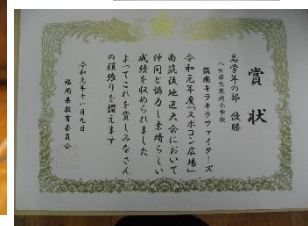 賞状
高学年の部 優勝
筑南キラキラファイターズ
令和元年度「スポコン広場」
南筑後地区大会において
仲間と協力し素晴らしい
成績を収められました
よってこれを賞しみなさん
の頑張りを讃えます
令和元年十一月九日
福岡県教育委員会